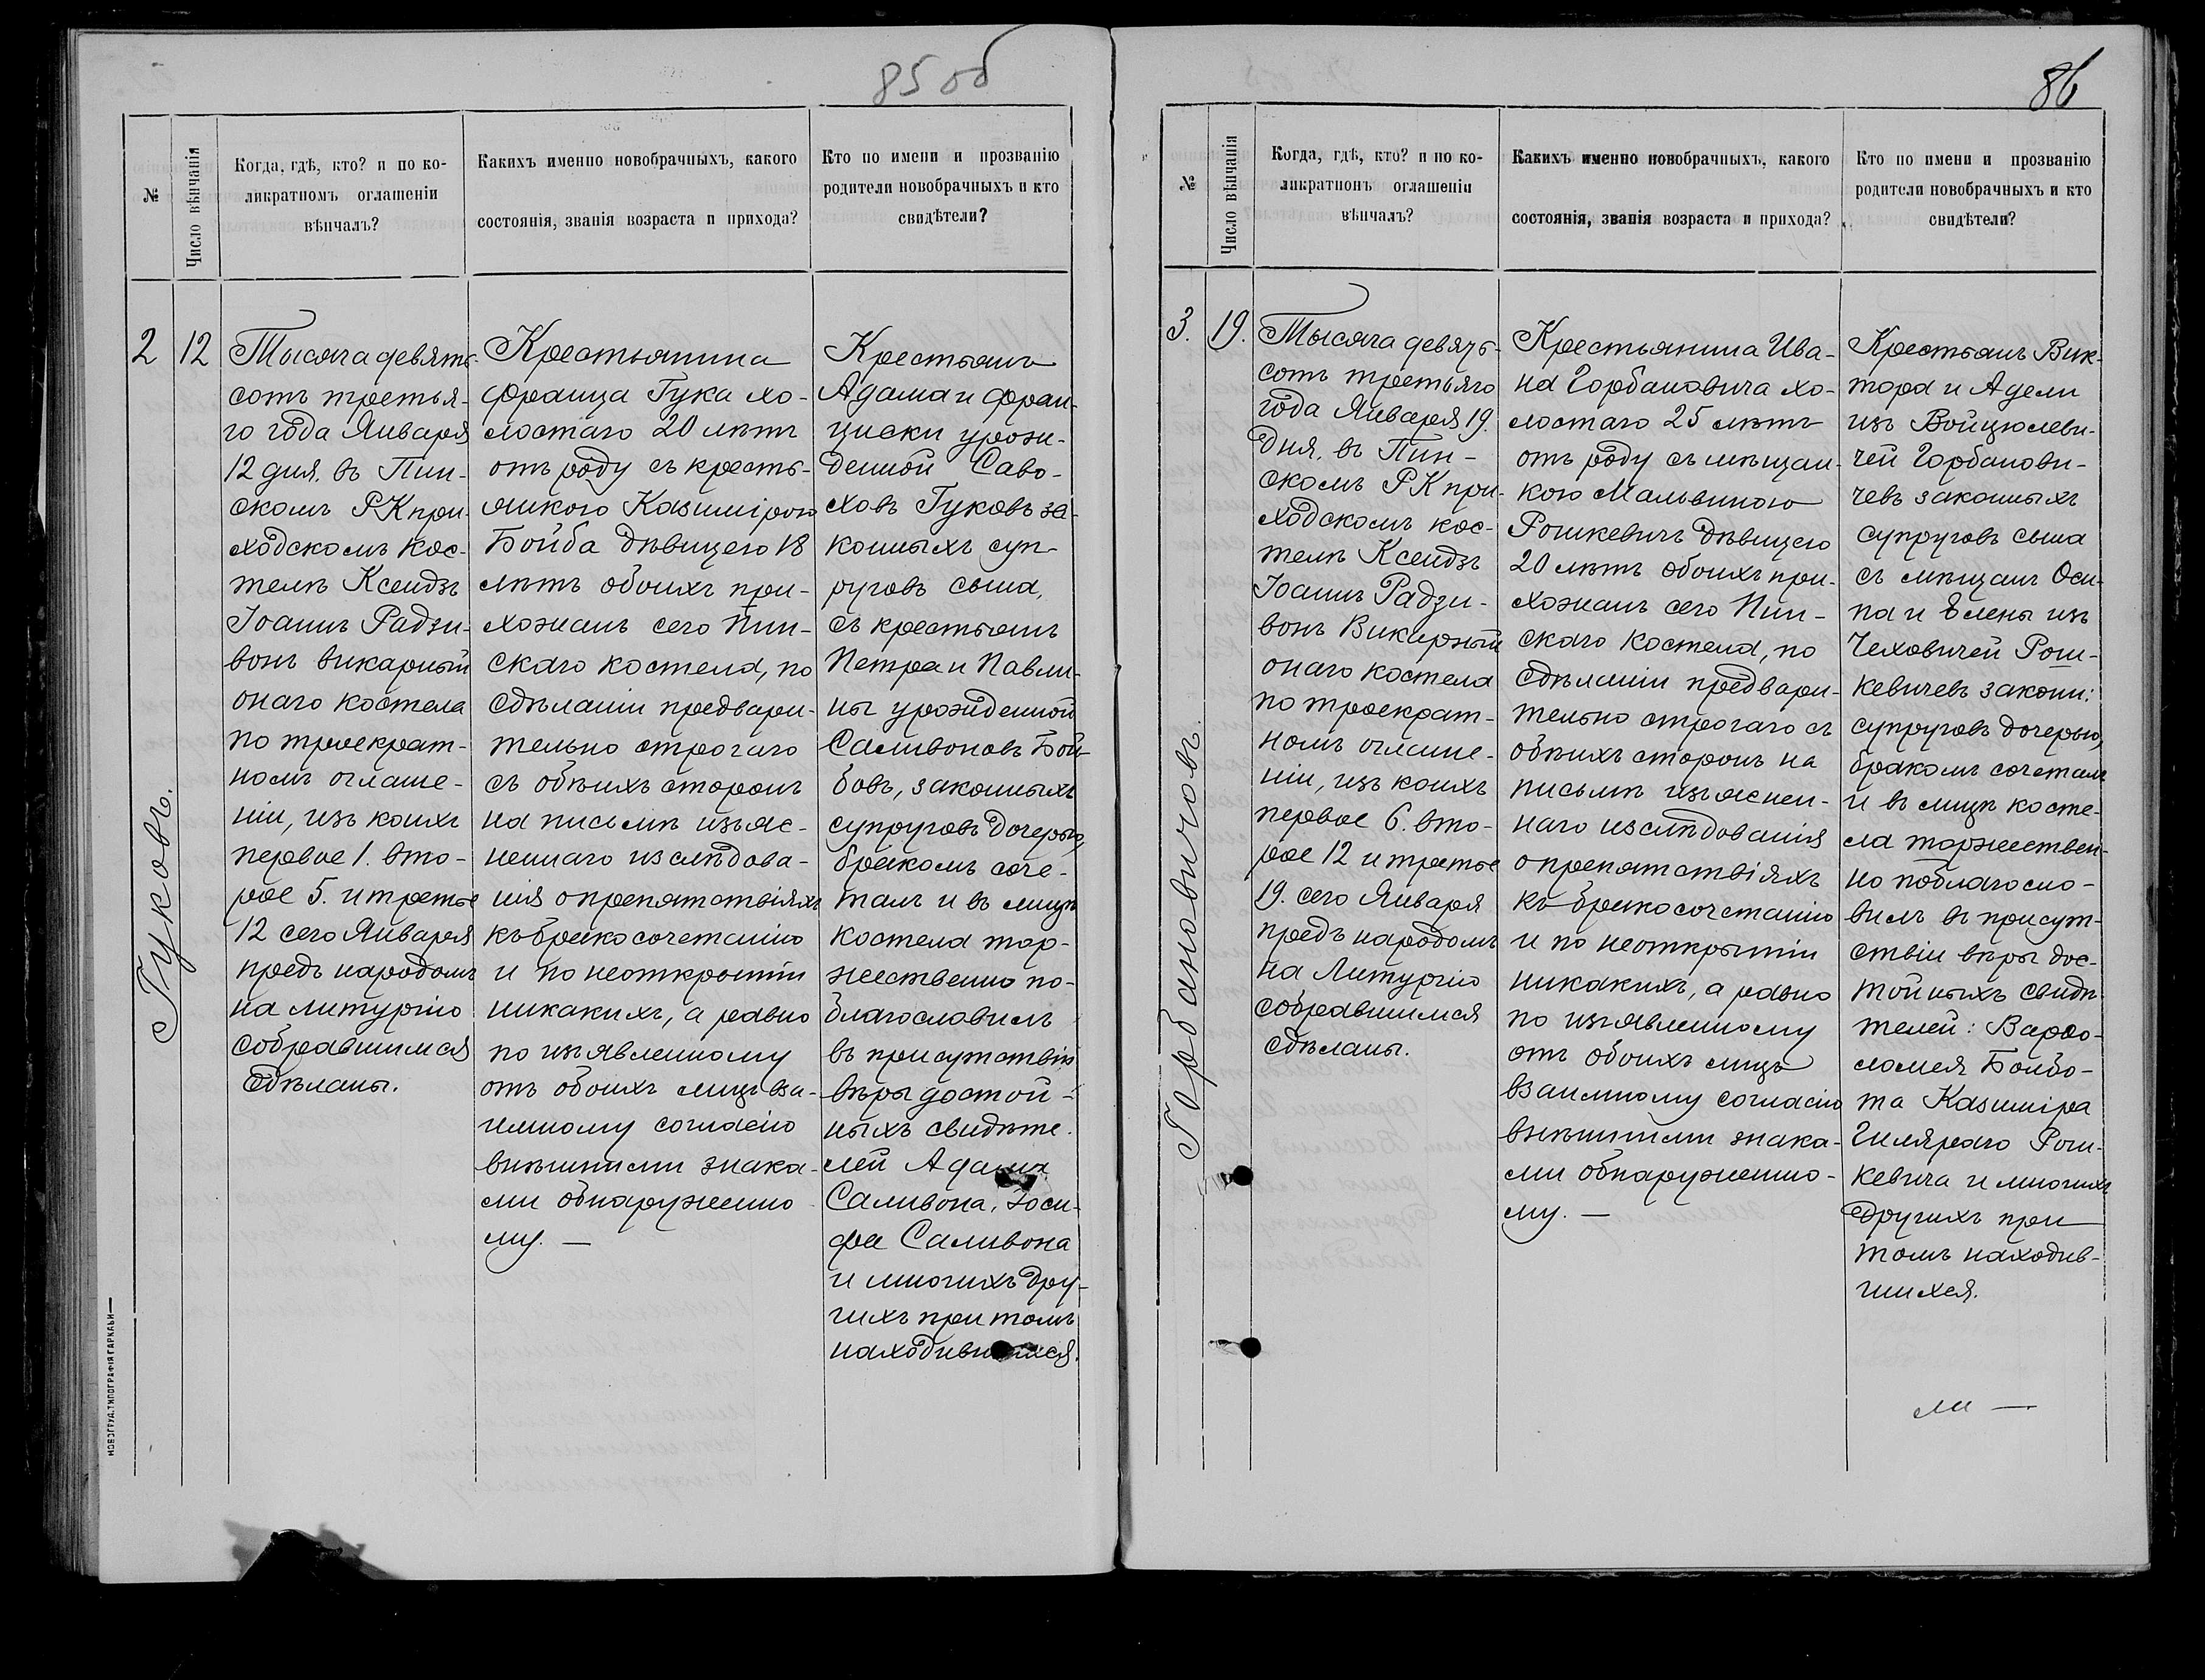 85 об
№
Число вѣнчанія
Когда, гдѣ, кто? и по ко-
ликратномъ оглашеніи
вѣнчалъ?
Какихъ именно новобрачныхъ, какого
состоянія, званія возраста и прихода?
Кто по имени и прозванію
родители новобрачныхъ и кто
свидѣтели?
2
12
Гуковъ.
Тысяча девять-
сотъ третья-
го года Января
12 дня. въ Пин-
скомъ РК при-
ходскомъ кос-
телѣ Ксендзъ
Іоаннъ Радзи-
вонъ викарный
онаго костела
по троекрат-
номъ оглаше-
ніи, изъ коихъ
первое 1. вто-
рое 5. и третье
12 сего Января
предъ народомъ
на литургію
собравшимся
сдѣланы.
Крестьянина
Франца Гука хо-
лостаго 20 лѣтъ
отъ роду съ кресть-
янкою Казимірою
Бойба дѣвицею 18
лѣтъ обоихъ при-
хожанъ сего Пин-
скаго костела, по
сдѣланіи предвари-
тельно строгаго
съ обѣихъ сторонъ
на письмѣ изъяс-
неннаго изслѣдова-
нія о препятствіяхъ
къ бракосочетанію
и по неоткрытіи
никакихъ, а равно
по изъявленному
отъ обоихъ лицъ вза-
имному согласію
внѣшними знака-
ми обнаруженно
му. —
Крестьянъ
Адама и Фран-
циски урож-
денной Саво-
ховъ Гуковъ за-
конныхъ суп-
руговъ сына,
съ крестьянъ
Петра и Павли-
ны урожденной
Саливоновъ Бой-
бовъ, законныхъ
супруговъ дочерью,
бракомъ соче-
талъ и въ лицѣ
костела тор-
жественно по-
благословилъ
въ присутствіи
вѣры достой-
ныхъ свидѣте-
лей Адама
Саливона, Іоси-
фа Саливона
и многихъ дру-
гихъ при томъ
находившихся.
НОВОГРУД. ТИПОГРАФІЯ ГАРКАВИ
86
№
Число вѣнчанія
Когда, гдѣ, кто? и по ко-
ликратномъ оглашеніи
вѣнчалъ?
Какихъ именно новобрачныхъ, какого
состоянія, званія возраста и прихода?
Кто по имени и прозванію
родители новобрачныхъ и кто
свидѣтели?
3.
19.
Горбановичовъ.
Тысяча девять-
сотъ третьяго
года Января 19.
дня. въ Пин-
скомъ РК при-
ходскомъ кос-
телѣ Ксендзъ
Іоаннъ Радзи-
вонъ Викарный
онаго костела
по троекрат-
номъ оглаше-
ніи, изъ коихъ
первое 6. вто-
рое 12 и третье
19. сего Января
предъ народомъ
на Литургію
собравшимся
сдѣланы.
Крестьянина Ива-
на Горбановича хо-
лостаго 25 лѣтъ
отъ роду съ мѣщан-
кою Мальвиною
Рошкевичъ дѣвицею
20 лѣтъ обоихъ при-
хожанъ сего Пин-
скаго костела, по
сдѣланіи предвари-
тельно строгаго съ
обѣихъ сторонъ на
письмѣ изъяснен-
наго изслѣдованія
о препятствіяхъ
къ бракосочетанію
и по неоткрытіи
никакихъ, а равно
по изъявленному
отъ обоихъ лицъ
взаимному согласію
внѣшними знака-
ми обнаруженно-
му. —
Крестьянъ Вик-
тора и Адели
изъ Войцюлеви-
чей Горбанови-
чевъ законныхъ
супруговъ сына
съ мѣщанъ Оси-
па и Елены изъ
Чеховичей Рош-
кевичевъ законн:
супруговъ дочерью,
бракомъ сочеталъ
и въ лицѣ косте-
ла торжествен-
но поблагосло-
вилъ въ присут-
ствіи вѣры дос-
тойныхъ свидѣ-
телей: Варфо-
ломея Бойбо-
та Казиміра
Гиляраго Рош-
кевича и многихъ
другихъ при
томъ находив-
шихся.